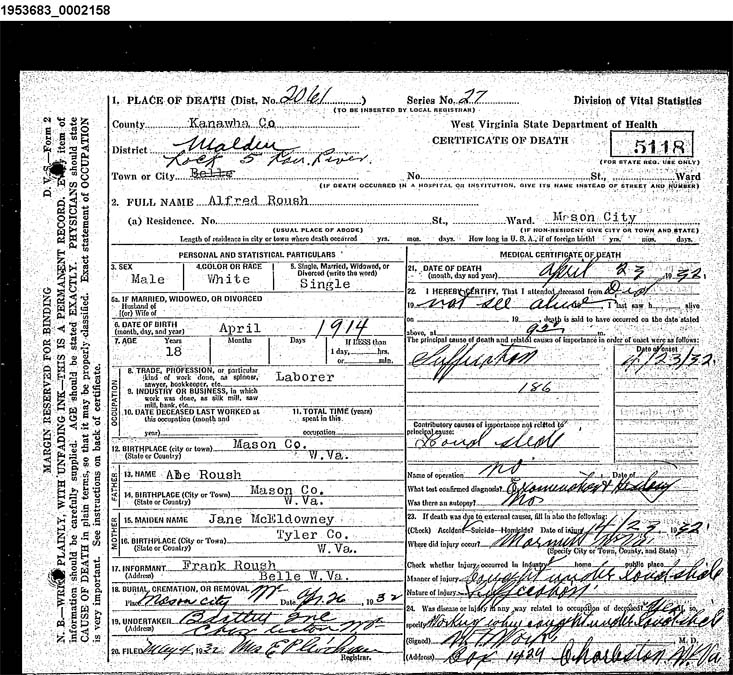 1953683_0002158
1. PLACE OF DEATH (Dist. No. 2061) Series No. 27 Division of Vital Statistics
(TO BE INSERTED BY LOCAL REGISTRAR)
County Kanawha Co West Virginia State Department of Health
District Malden CERTIFICATE OF DEATH 5118
Lock 5 Kan. River. (FOR STATE REG. USE ONLY)
Town or City Belle No. St., Ward
(IF DEATH OCCURRED IN A HOSPITAL OR INSTITUTION, GIVE ITS NAME INSTEAD OF STREET AND NUMBER)
2. FULL NAME Alfred Roush
(a) Residence. No. St., Ward. Mason City
(USUAL PLACE OF ABODE) (IF NON-RESIDENT GIVE CITY OR TOWN AND STATE)
Length of residence in city or town where death occurred yrs. mos. days. How long in U. S. A., if of foreign birth? yrs. mos. days.
PERSONAL AND STATISTICAL PARTICULARS
3. SEX 4. COLOR OR RACE 5. Single, Married, Widowed, or Divorced (write the word)
Male White Single
5a. IF MARRIED, WIDOWED, OR DIVORCED
Husband of
(or) Wife of
6. DATE OF BIRTH
(month, day, and year) April 1914
7. AGE Years Months Days If LESS than
18 1 day, hrs.
or min.
OCCUPATION
8. TRADE, PROFESSION, or particular
kind of work done, as spinner,
sawyer, bookkeeper, etc. Laborer
9. INDUSTRY OR BUSINESS, in which
work was done, as silk mill, saw
mill, bank, etc.
10. DATE DECEASED LAST WORKED at 11. TOTAL TIME (years)
this occupation (month and spent in this
year) occupation
12. BIRTHPLACE (city or town) Mason Co.
(State or Country) W.Va.
FATHER
13. NAME Abe Roush
14. BIRTHPLACE (City or Town) Mason Co.
(State or Country) W.Va.
MOTHER
15. MAIDEN NAME Jane McEldowney
16. BIRTHPLACE (City or Town) Tyler Co.
(State or Country) W.Va.
17. INFORMANT Frank Roush
(Address) Belle W.Va.
18. BURIAL, CREMATION, OR REMOVAL
Place Mason City Date 26, 1932
19. UNDERTAKER Bartlett Inc
(Address) Charleston
20. FILED May 4, 1932 Mrs E P
Registrar.
MEDICAL CERTIFICATE OF DEATH
21. DATE OF DEATH
(month, day, and year) April 23, 1932
22. I HEREBY CERTIFY, That I attended deceased from Did
19 not see alive I last saw h alive
on 19 , death is said to have occurred on the date stated
above, at m.
The principal cause of death and related causes of importance in order of onset were as follows:
Date of onset
Suffocation 4/23/32
186
Contributory causes of importance not related to
principal cause:
Name of operation no Date of
What test confirmed diagnosis? History
Was there an autopsy? No
23. If death was due to external causes, fill in also the following:
(Check) Accident—Suicide—Homicide? Date of injury 4/23 1932
Where did injury occur? Marmet W Va
(Specify City or Town, County, and State)
Check whether injury occurred in industry home public place
Manner of injury Caught under
Nature of injury Suffocation
24. Was disease or injury in any way related to occupation of deceased? Yes If so,
specify Working when caught under
(Signed) M. D.
(Address) Box 1489 Charleston W.Va
MARGIN RESERVED FOR BINDING D. V. S.—Form 2
N. B.—WRITE PLAINLY, WITH UNFADING INK—THIS IS A PERMANENT RECORD. Every item of
information should be carefully supplied. AGE should be stated EXACTLY. PHYSICIANS should state
CAUSE OF DEATH in plain terms, so that it may be properly classified. Exact statement of OCCUPATION
is very important. See instructions on back of certificate.